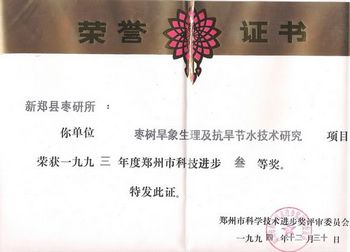 荣誉证书
新郑县枣研所：
你单位 枣树旱象生理及抗旱节水技术研究 项目
荣获一九九三年度郑州市科技进步叁等奖。
特发此证。
郑州市科学技术进步奖评审委员会
一九九四年十二月三十日